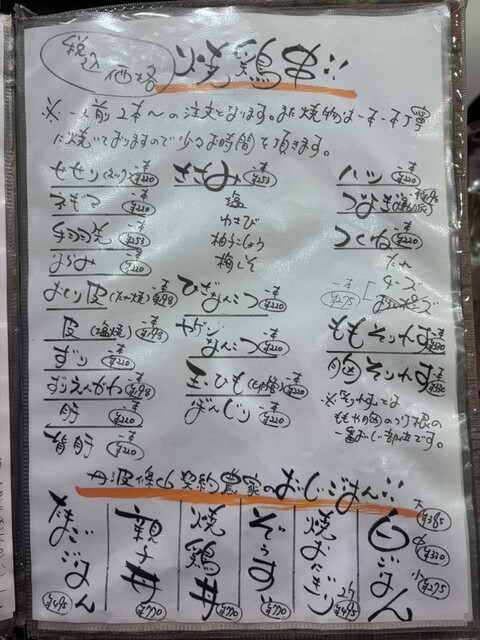 税込価格
焼鶏串!!
※一人前2本〜の注文となります。また焼物は一本一本丁寧
に焼いておりますので少々お時間を頂きます。
せせり(ネック) 一本 ¥220
ネギマ 一本 ¥220
手羽先 一本 ¥253
一本 ¥220
おどり皮(たれ焼) 一本 ¥198
皮(塩焼) 一本 ¥198
ずり 一本 ¥220
ずりえんがわ 一本 ¥198
肝 一本 ¥220
背肝 一本 ¥220
ささみ 一本 ¥253
塩
わさび
柚子こしょう
梅しそ
ひざなんこつ 一本 ¥220
ヤゲンなんこつ 一本 ¥220
玉ひも(たれ焼) 一本 ¥220
ぼんじり 一本 ¥220
ハツ 一本 ¥220
つなぎ 一本 ¥198
つくね 一本 ¥220
たれ
チーズ
一本 ¥275
ももそりれす 一本 ¥330
胸そりれす 一本 ¥330
※そりれすとは
ももや胸のつけ根の
一番おいしい部位です。
丹波篠山契約農家のおいしいごはん!!
たまごごはん ¥495
親子丼 ¥770
焼鶏丼 ¥770
ぞうすい ¥770
焼おにぎり 2ケ ¥495
白ごはん 大 ¥385 中 ¥330 小 ¥275